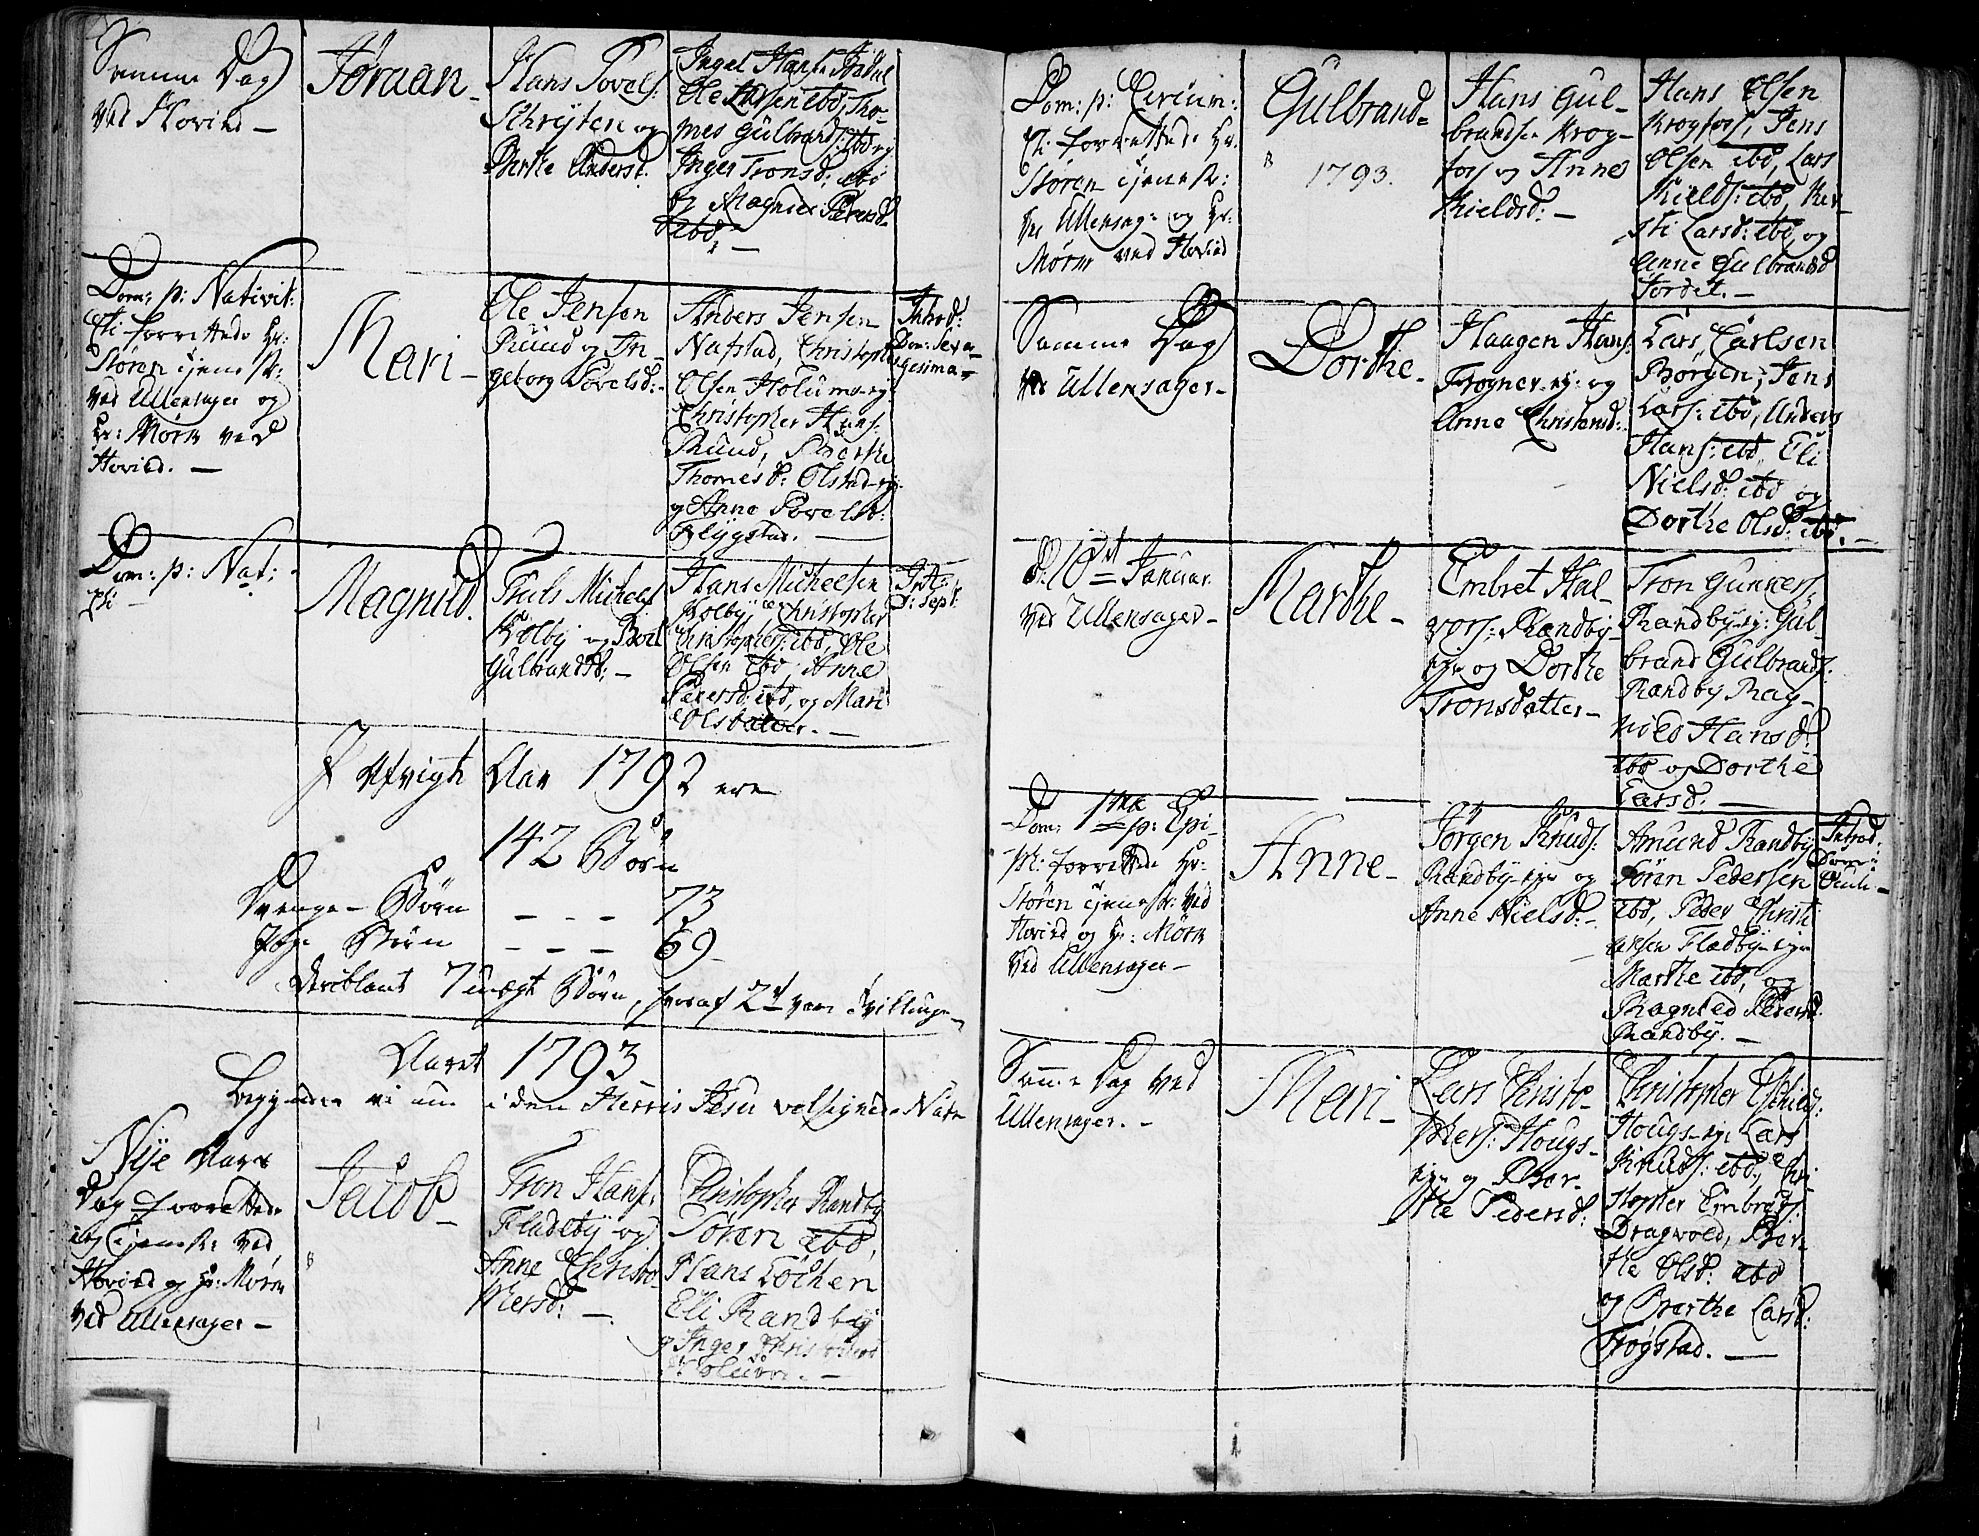 Samme Dag
ved Hovind –
Jøraan –
Hans Povels:
Schrejten og
Berthe Andersd:
Ole Larsen ibd, Tho-
mes Gulbrands: ibd og
Inger Tronsd: ibd
og Magnild Pedersd
ibd, –
Dom: p: Nativit:
Xti forrettede Hr:
Støren Tjenest:
ved Ullensager og
Hr: Mørk ved
Hovind. –
Mari –
Ole Jensen
Ruud og In-
geborg Povelsd: –
Anders Jensen
Nafstad, Christopher
Olsen Holums-ej:
Christopher Hans:
Ruud, Berthe
Thomesd: Olstad-ej:
og Anne Povelsd:
Flygstad. –
Introd:
Dom: Sexa-
gesima –
Dom: p: Nat:
Xti –
Magnild.
Truls Michels:
Kolby og Boel
Gulbrandsd: –
Hans Michelsen
Kolby, Christopher
Christophers: ibd, Ole
Olsen ibd, Anne
Pedersd: ibd, og Mari
Olsdatter. –
I Afvigte Aar 1792 ere
142 Børn
Drenge-Børn – – – 73
Pige Børn – – – 69
deriblant 7 uægte Børn, hvoraf 2de vare Tvillinger
Aaret 1793
Begynde vi i den Herris Jesu velsignede Navn
Nye Aars
Dag forrettede
jeg Tjenest: ved
Hovind og Hr: Mørk
ved Ullensager –
Jacob –
Tron Hans:
Fladeby og
Anne Christo-
phersd: –
Christopher Randby
Søren ibd,
Hans Løchen
Eli Randby
og Inger Christophersd
Holum. –
Dom: p: Circum:
Xti forrettede Hr:
Støren Tjenest:
ved Ullensag: og Hr:
Mørk ved Hovind
Gulbrand –
1793.
Hans Gul-
brands: Krog-
fos og Anne
Kieldsd: –
Hans Olsen
Krogfos, Jens
Olsen ibd, Lars
Kields: ibd, Ker-
sti Larsd: ibd, og
Anne Gulbrandsd
Jordet. –
Samme Dag
ved Ullensager –
Dorthe –
Haagen Hans:
Frogner-ej: og
Anne Christensd:
Lars Carlsen
Børgen, Jens
Lars: ibd, Anders
Hans: ibd, Eli
Nielsd: ibd og
Dorthe Olsd: ibd. –
d: 10de Januar
ved Ullensager –
Marthe –
Embret Hal-
vors: Randby-
eje og Dorthe
Tronsdatter –
Tron Gunners:
Randby-ej: Gul-
brand Gulbrands:
Randby Rag-
nild Hansd:
ibd og Dorthe
Larsd. –
Dom: 1ste p: Epi-
ph: forrettede Hr:
Støren Tjenest: ved
Hovind og Hr: Mørk
ved Ullensager –
Anne –
Jørgen Knuds:
Randby-eje og
Anne Nielsd: –
Amund Randby
Søren Pedersen
ibd, Peder Christi
ansen Fladby-eje
Marthe ibd, og
Ragnild Pedersd
Randby. –
Introd:
Dom:
Oculi –
Samme Dag ved
Ullensager. –
Mari –
Lars Christo-
phers: Hougs-
eje og Ber-
the Pedersd:
Christopher Eschilds:
Hougs-ej: Lars
Knuds: ibd, Chri
stopher Embrets:
Dragvold, Ber-
the Olsd: ibd
og Berthe Larsd:
Trøgstad. –